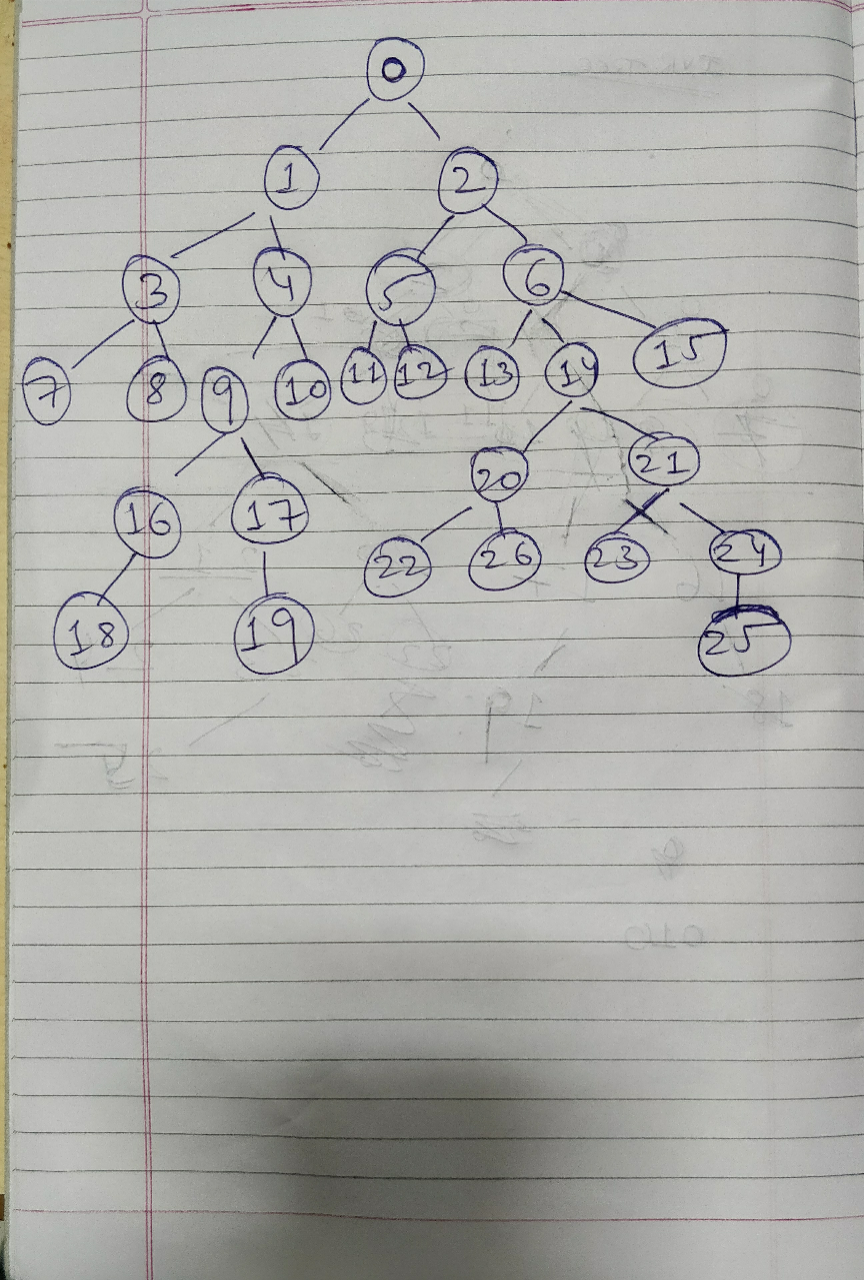 0
1 2
3 4 5 6
7 8 9 10 11 12 13 14 15
16 17 20 21
18 19 22 26 23 24
25